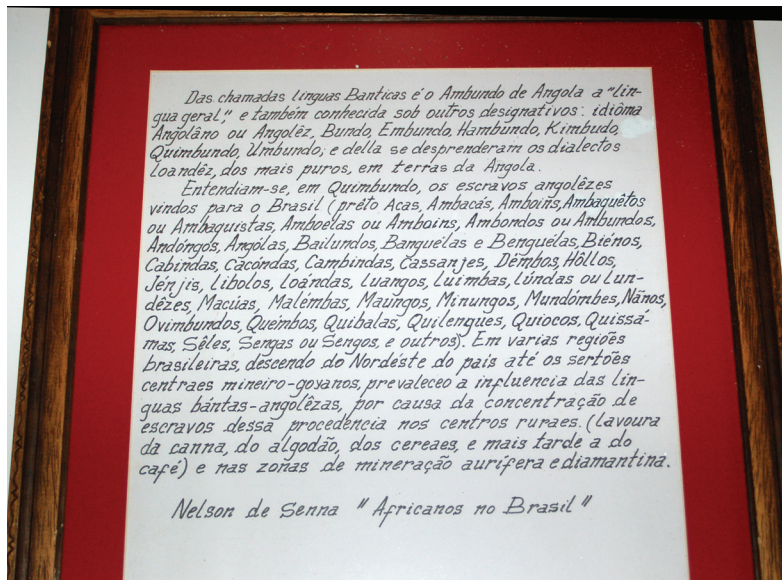 Das chamadas línguas Banticas é o Ambundo de Angola a "lín-
gua geral," e também conhecida sob outros designativos: idiôma
Angolâno ou Angolêz, Bundo, Embundo, Hambundo, Kimbudo,
Quimbundo, Umbundo; e della se desprenderam os dialectos
loandêz, dos mais puros, em terras da Angola.
Entendiam-se, em Quimbundo, os escravos angolêzes
vindos para o Brasil (prêto Aças, Ambacás, Amboíns, Ambaquêtos
ou Ambaquistas, Amboelas ou Amboins, Ambondos ou Ambundos,
Andôngos, Angólas, Bailundos, Banguélas e Benguélas, Biénos,
Cabindas, Cacôndas, Cambindas, Cassanjes, Dêmbos, Hôllos,
Jénjis, Libolos, loândas, luangos, luimbas, lúndas ou lun-
dêzes, Macúas, Malémbas, Maúngos, Minungos, Mundômbes, Nânos,
Ovimbundos, Quembos, Quibalas, Quilengues, Quiocos, Quissâ-
mas, Sêles, Sengas ou Sengos, e outros). Em varias regiões
brasileiras, descendo do Nordéste do país até os sertões
centraes mineiro-goyanos, prevaleceo a influencia das lín-
guas bántas-angolêzas, por causa da concentração de
escravos dessa procedência nos centros ruraes. (lavoura
da canna, do algodão, dos cereaes, e mais tarde a do
café) e nas zonas de mineração aurífera e diamantina.
Nelson de Senna "Africanos no Brasil"